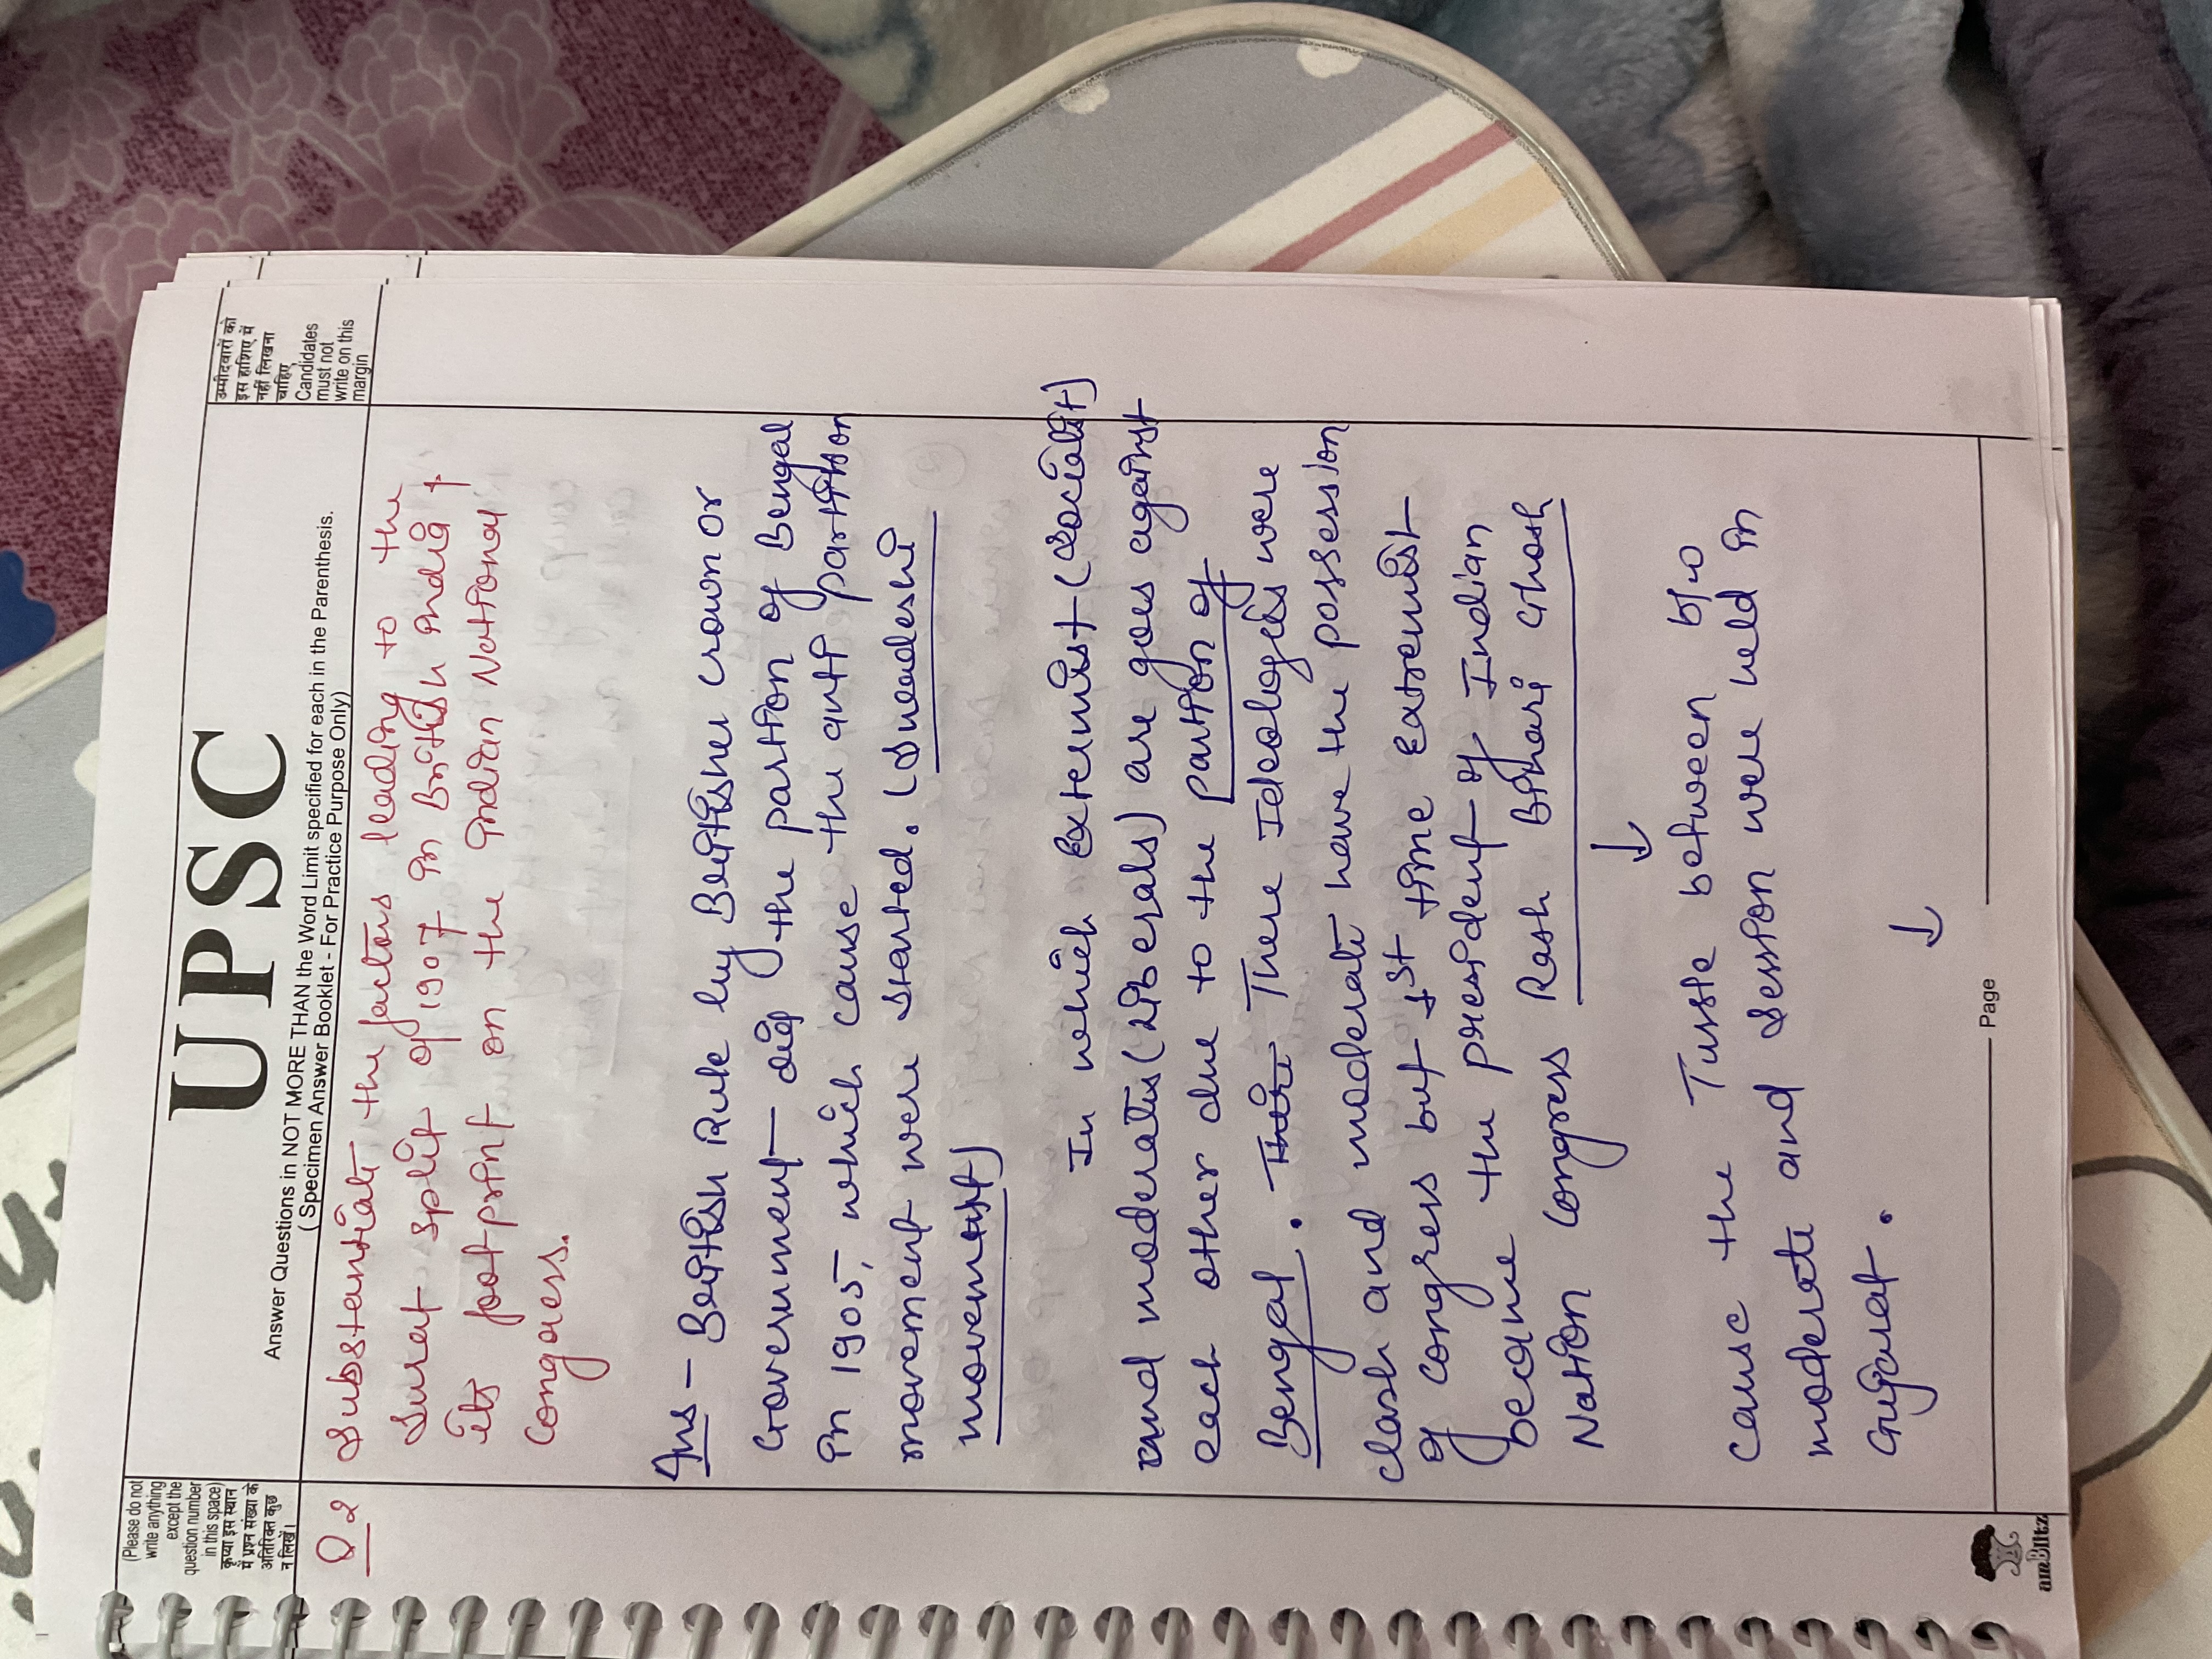 (Please do not
write anything
except the
question number
in this space)
कृपया इस स्थान
में प्रश्न संख्या के
अतिरिक्त कुछ
न लिखें।
UPSC
Answer Questions in NOT MORE THAN the Word Limit specified for each in the Parenthesis.
( Specimen Answer Booklet - For Practice Purpose Only)
उम्मीदवारों को
इस हाशिए में
नहीं लिखना
चाहिए
Candidates
must not
write on this
margin
Q 2 Substantiate the factors leading to the
Surat split of 1907 in British India &
its footprint on the Indian National
Congress.
Ans - British Rule by Britisher crown or
Government did the partion of Bengal
in 1905, which cause the anti partition
movement were started. (Swadeshi
movement)
In which Extermist (Socialist)
and moderates (Liberals) are goes against
each other due to the partion of
Bengal. There Ideologies were
clash and moderate have the possession
of congress but 1st time extremist
became the president of Indian
Nation Congress Rash Bihari Ghosh
↓
cause the Tussle between b/w
moderate and Session were held in
Gujarat.
↓
Page